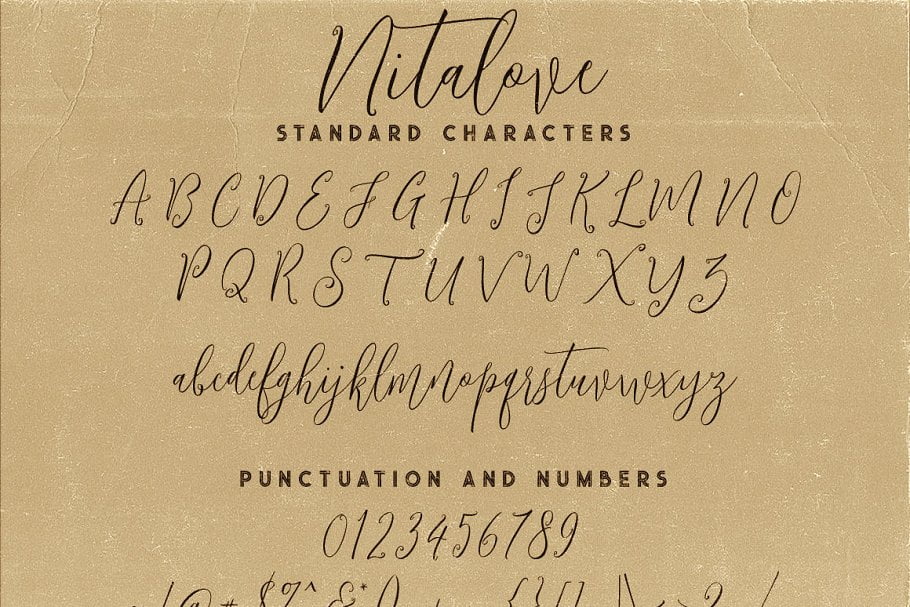 Nitalove
STANDARD CHARACTERS
A B C D E F G H I J K L M N O
P Q R S T U V W X Y Z
abcdefghijklmnopqrstuvwxyz
PUNCTUATION AND NUMBERS
0123456789